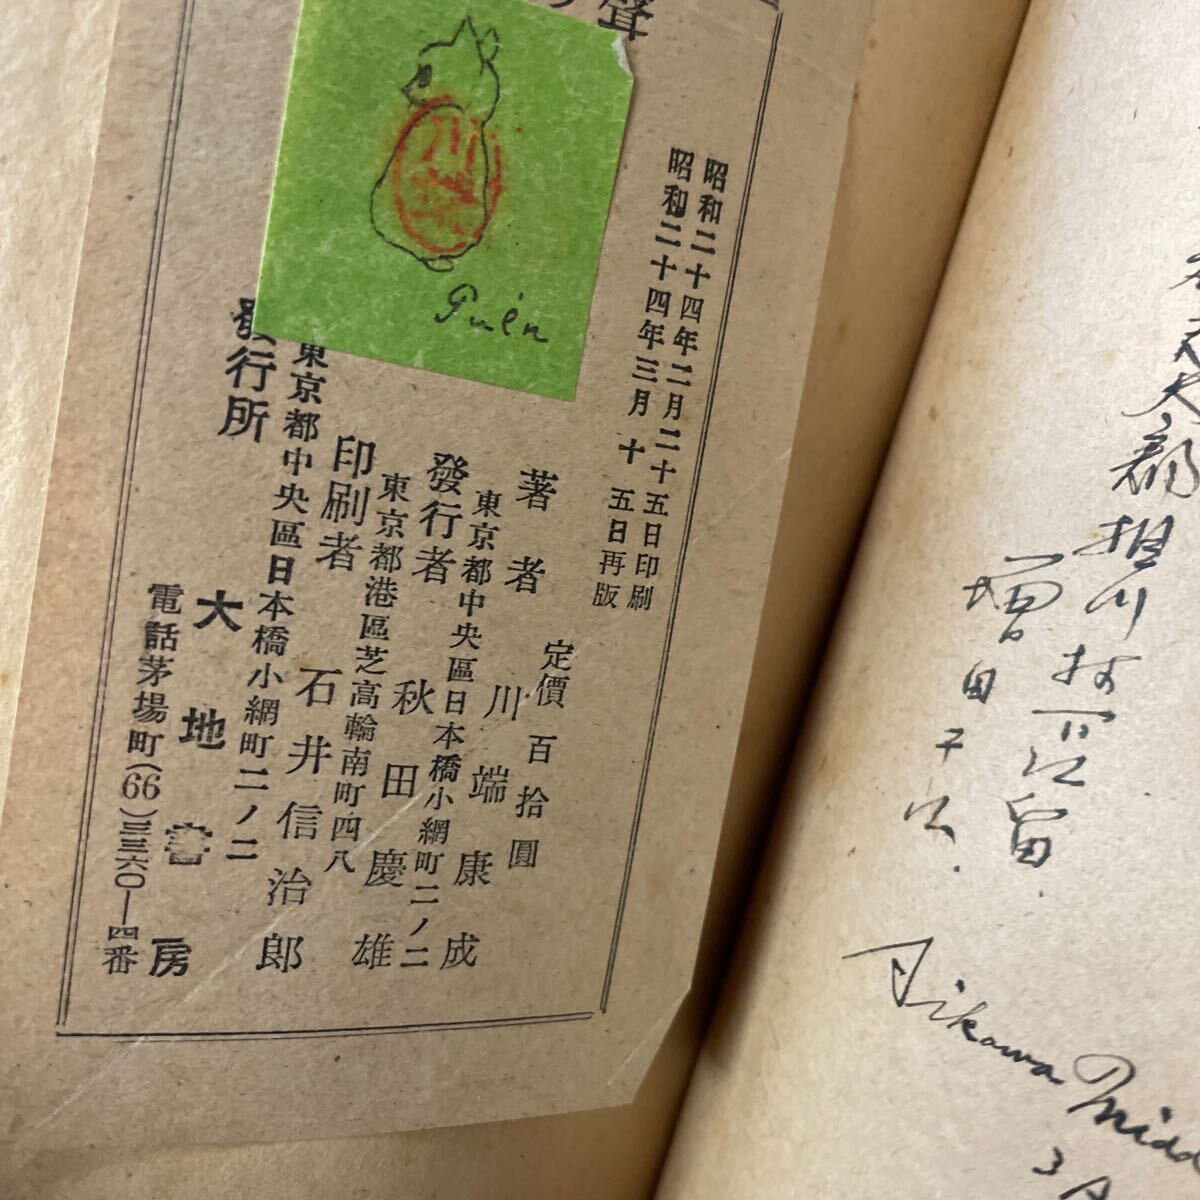 聲
昭和二十四年二月二十五日印刷
昭和二十四年三月十五日再版
定價百拾圓
著者 川端康成
東京都中央區日本橋小網町二ノ二
發行者 秋田慶雄
東京都港區芝高輪南町四八
印刷者 石井信治郎
東京都中央區日本橋小網町二ノ二
發行所 大地書房
電話茅場町(66)三三六〇—四番
増田
Aikawa
3月